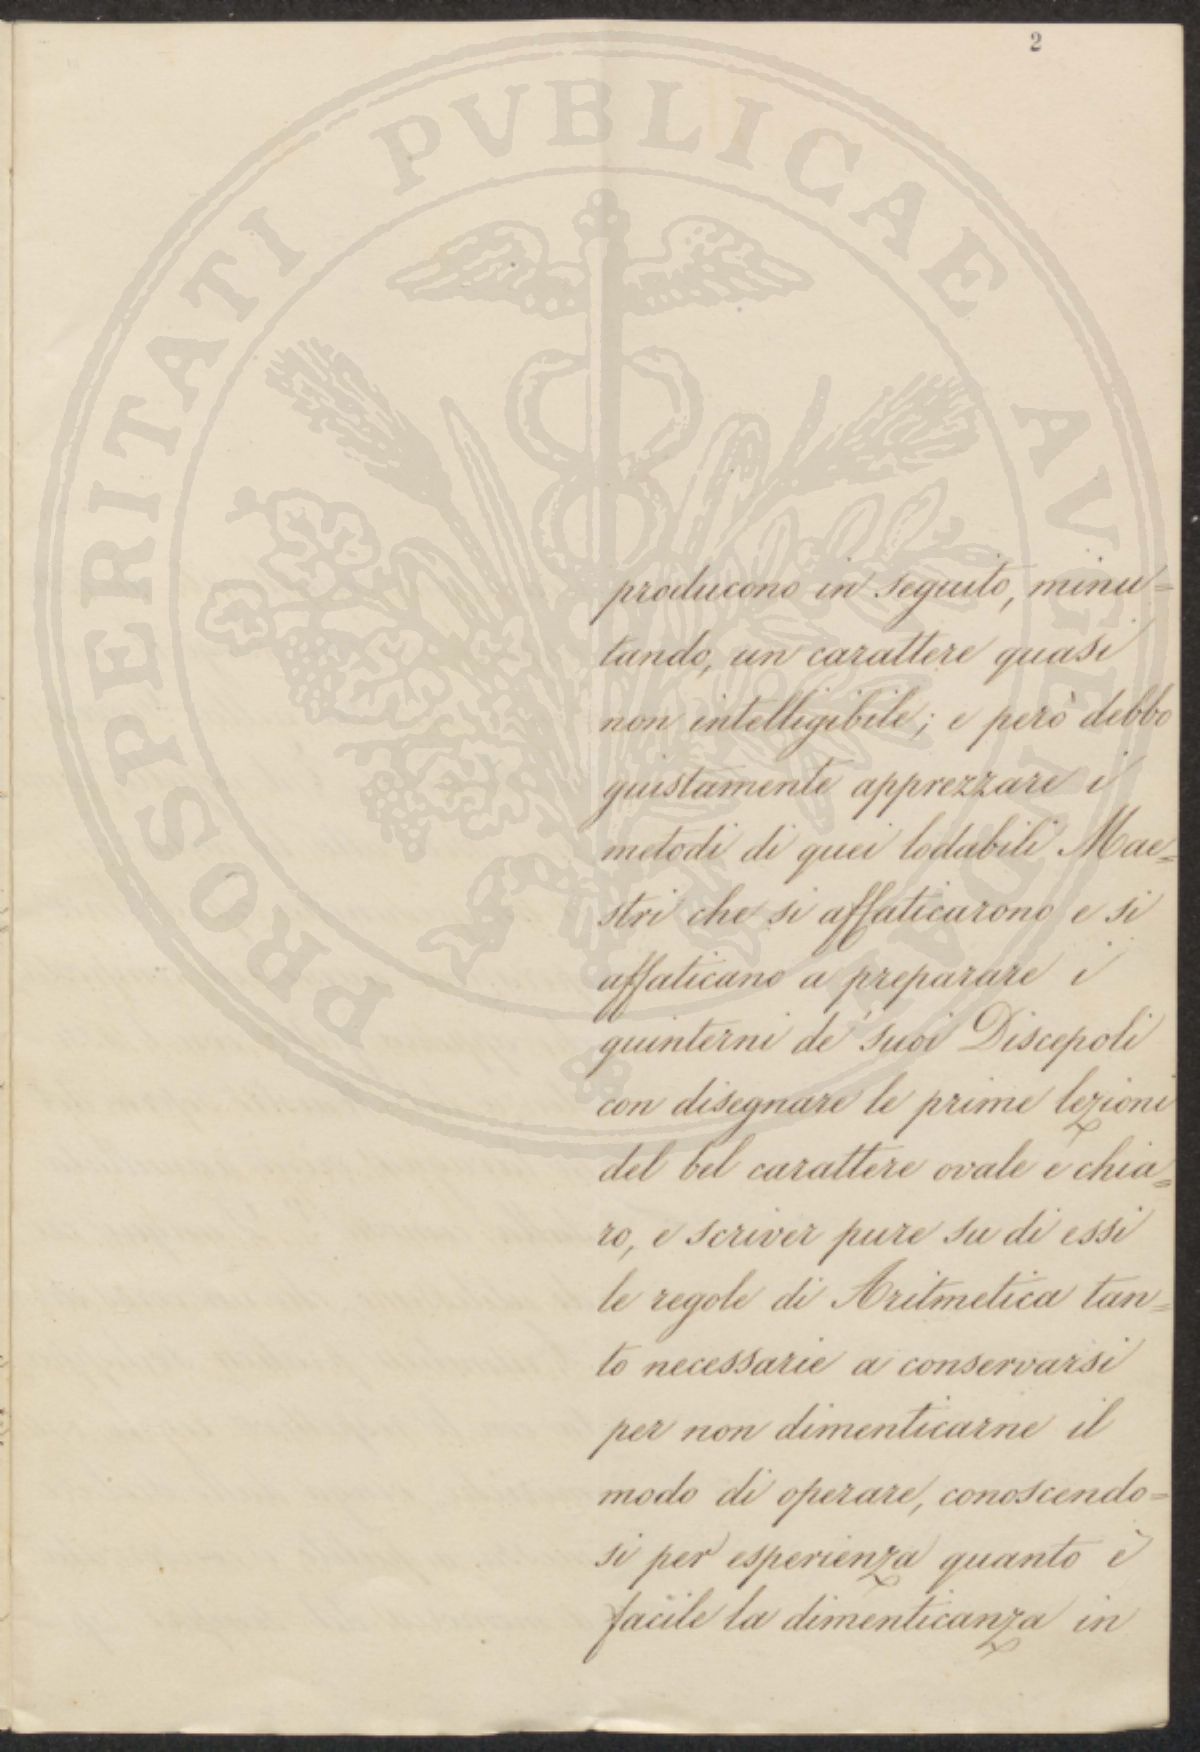 2
PROSPERITATI PVBLICAE AVGENDAE
producono in seguito, minu=
tando, un carattere quasi
non intelligibile; e però debbo
giustamente apprezzare i
metodi di quei lodabili Mae=
stri che si affaticarono e si
affaticano a preparare i
quinterni de' suoi Discepoli
con disegnare le prime lezioni
del bel carattere ovale e chia=
ro, e scriver pure su di essi
le regole di Aritmetica tan=
to necessarie a conservarsi
per non dimenticarne il
modo di operare, conoscendo=
si per esperienza quanto è
facile la dimenticanza in